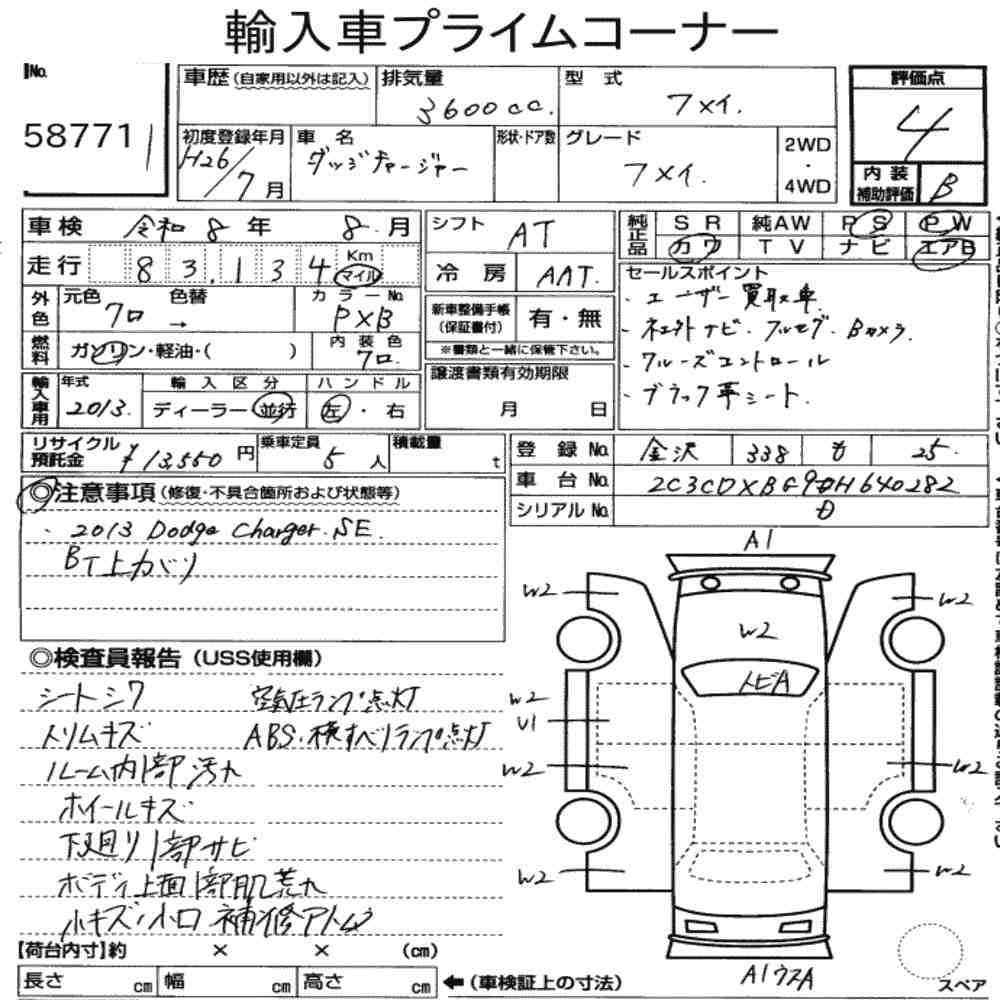 輸入車プライムコーナー
No. 58771
車歴(自家用以外は記入)
排気量 3600cc.
型式 フメイ.
評価点 4
初度登録年月 H26/7月
車名 ダッジチャージャー
形状・ドア数
グレード フメイ.
2WD
・
4WD
内装
補助評価 B
車検 令和8年8月
シフト AT
純正品 SR 純AW PS PW
カワ TV ナビ エアB
走行 83,134 Km マイル
冷房 AAT.
セールスポイント
・ユーザー買取車
外色 元色 クロ 色替 → カラーNo. PXB
新車整備手帳
(保証書付) 有・無
・社外ナビ・フルセグ・Bカメラ
※書類と一緒に保管下さい。
燃料 ガソリン・軽油・( ) 内装色 クロ.
・クルーズコントロール
譲渡書類有効期限
月 日
・ブラック革シート.
輸入車用 年式 2013. 輸入区分 ディーラー・並行 ハンドル 左・右
リサイクル
預託金 ¥13,550円
乗車定員 5人
積載量 t
登録No. 金沢 338 も 25.
車台No.
シリアルNo.
◎注意事項(修復・不具合箇所および状態等)
・2013 Dodge Charger.SE.
A1
W2 W2
W2
トビA
◎検査員報告(USS使用欄)
シートシワ 空気圧ランプ点灯
トリムキズ ABS・横すべりランプ点灯
ルーム内1部汚れ
ホイールキズ
下廻り1部サビ
ボディ上面1部肌荒れ
小キズ・小凹 補修アトム
W2
U1
W2 W2
W2 W2
A1
スペア
【荷台内寸】約 × × (cm)
長さ cm 幅 cm 高さ cm ←(車検証上の寸法)